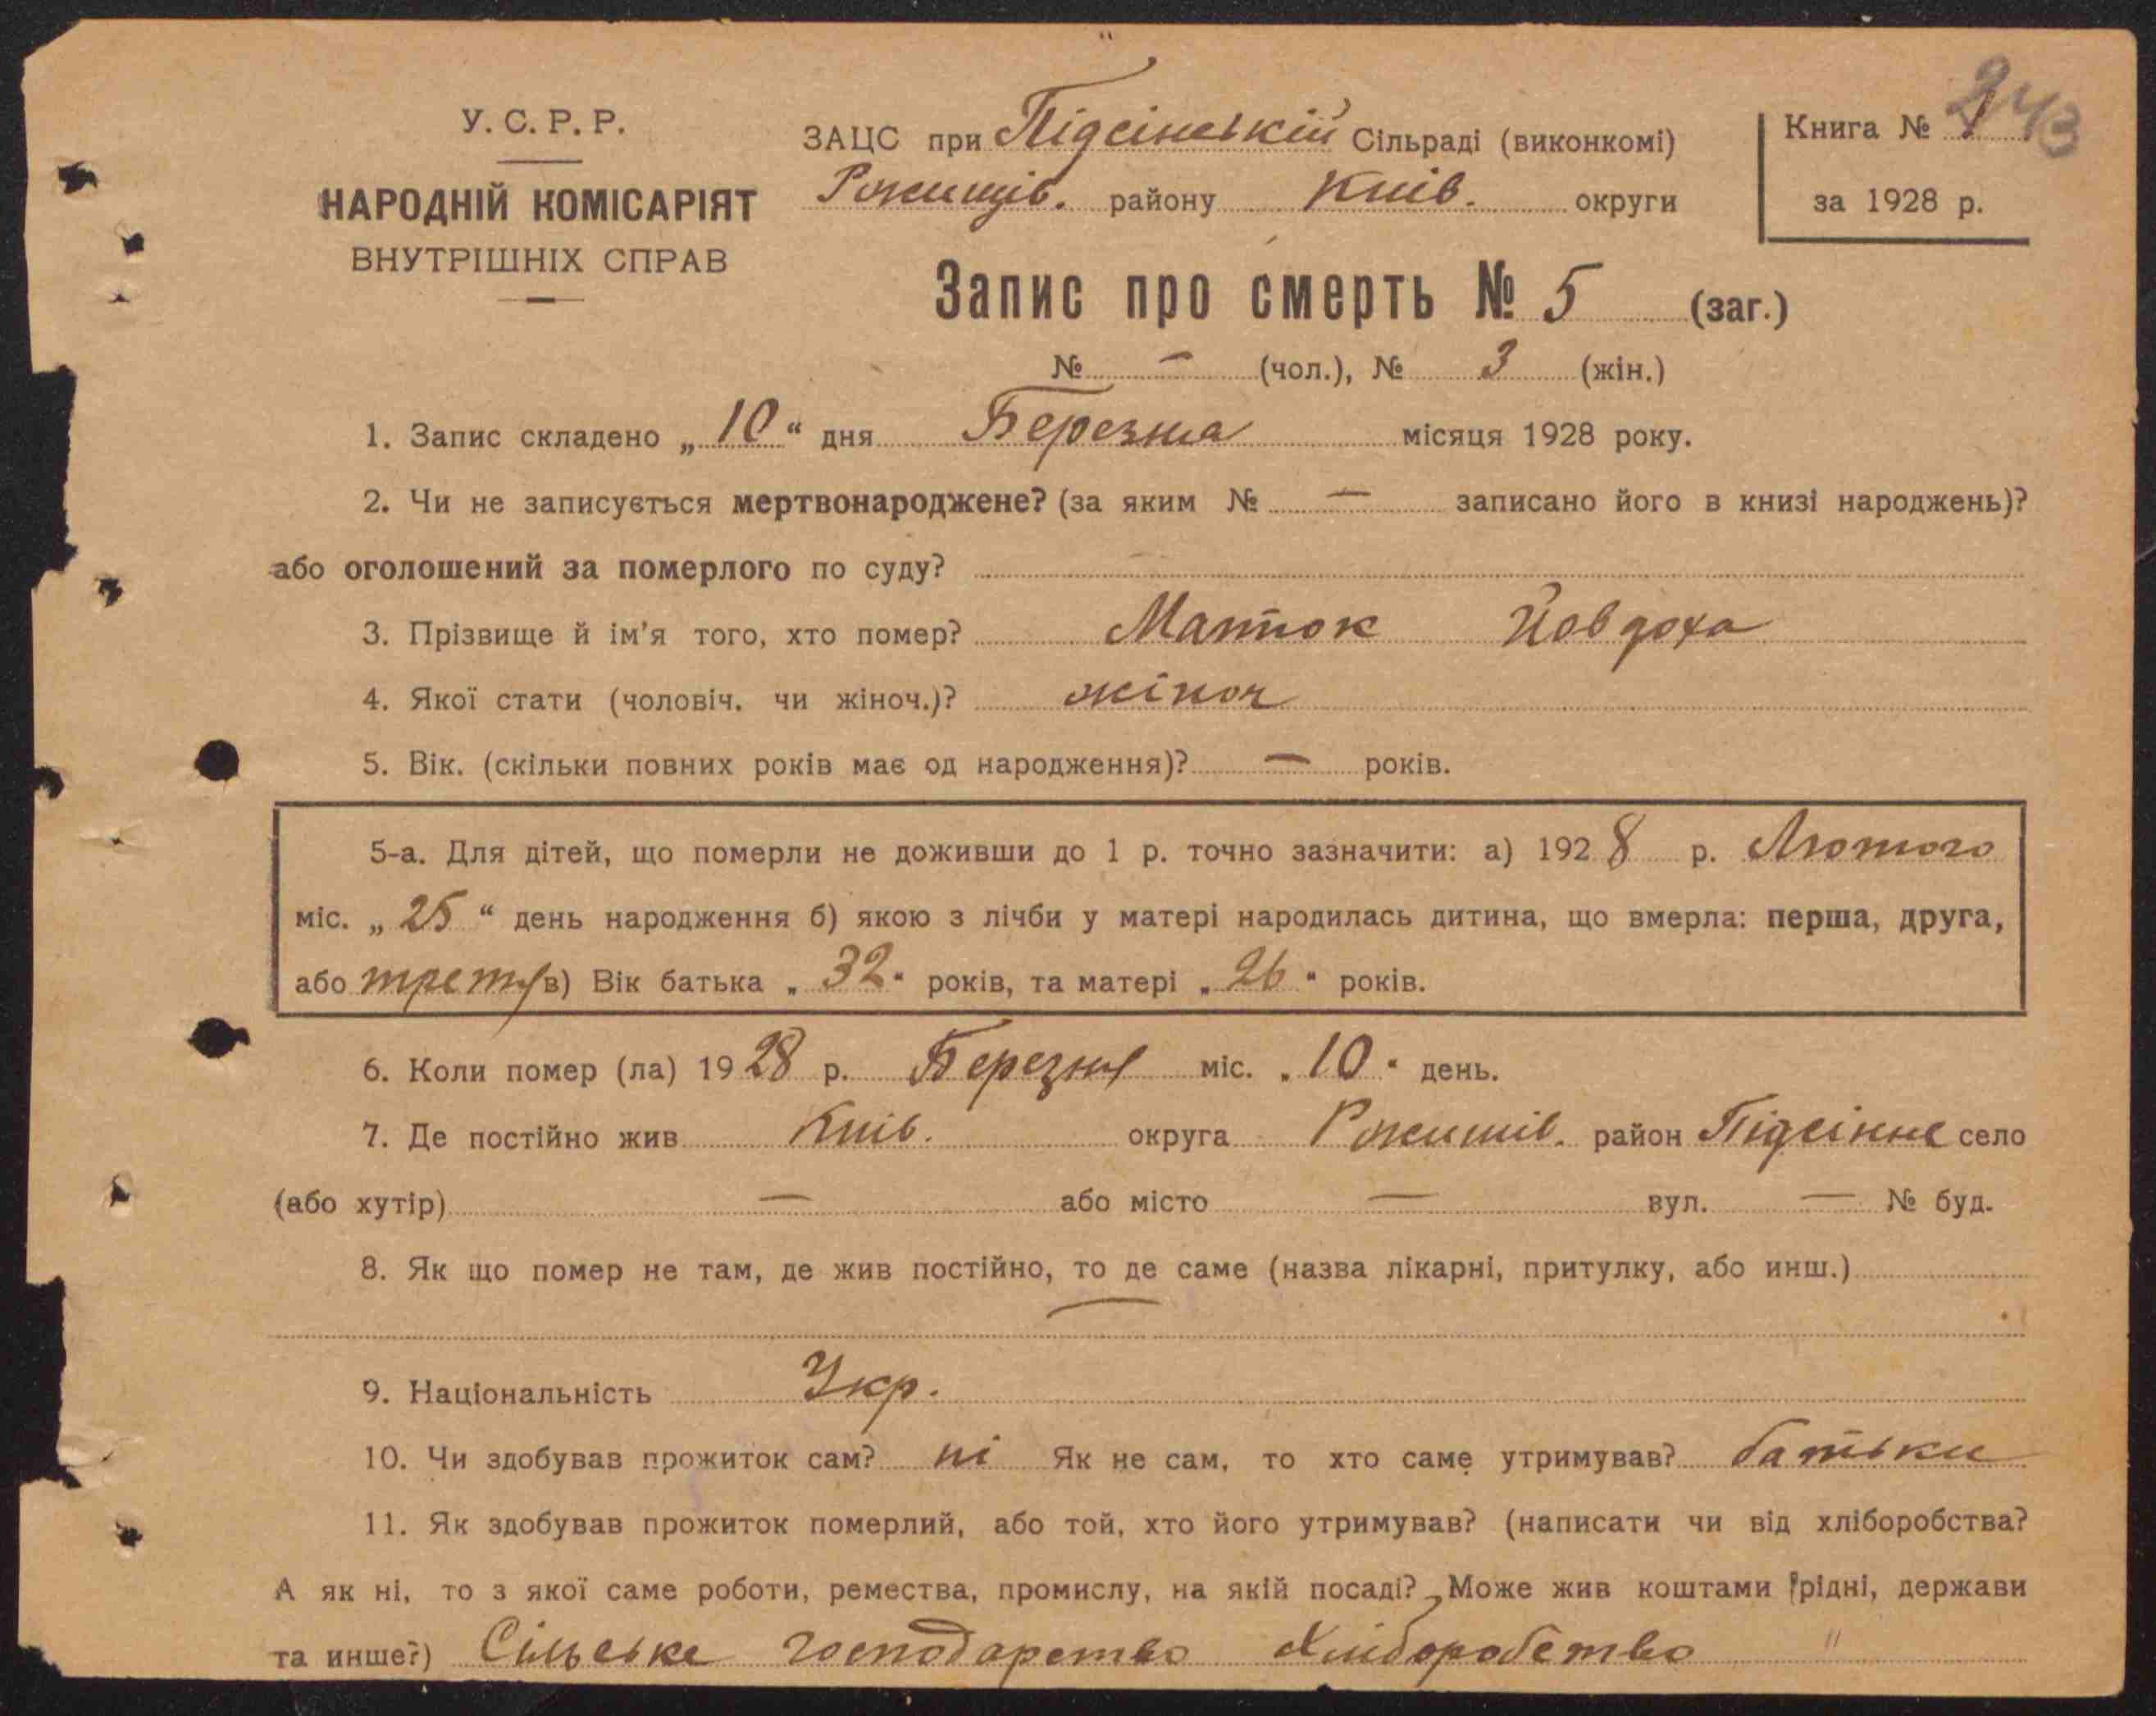 243
У. С. Р. Р.
НАРОДНІЙ КОМІСАРІЯТ
ВНУТРІШНІХ СПРАВ
ЗАЦС при Підсінській Сільраді (виконкомі)
Рожищів. району Київ. округи
Книга № 1
за 1928 р.
Запис про смерть № 5 (заг.)
№ — (чол.), № 3 (жін.)
1. Запис складено „ 10 “ дня Березня місяця 1928 року.
2. Чи не записується мертвонароджене? (за яким № — записано його в книзі народжень)?
або оголошений за померлого по суду?
3. Прізвище й ім'я того, хто помер? Маток Йовдоха
4. Якої стати (чоловіч. чи жіноч.)? жіноч
5. Вік. (скільки повних років має од народження)? — років.
5-а. Для дітей, що померли не доживши до 1 р. точно зазначити: а) 1928 р. Лютого
міс. „ 25 “ день народження б) якою з лічби у матері народилась дитина, що вмерла: перша, друга,
або третя в) Вік батька „ 32 “ років, та матері „ 26 “ років.
6. Коли помер (ла) 1928 р. Березня міс. „ 10 “ день.
7. Де постійно жив Київ. округа район Підсінне село
(або хутір) — або місто — вул. — № буд.
8. Як що помер не там, де жив постійно, то де саме (назва лікарні, притулку, або инш.)
—
9. Національність Укр.
10. Чи здобував прожиток сам? ні Як не сам, то хто саме утримував? батьки
11. Як здобував прожиток померлий, або той, хто його утримував? (написати чи від хліборобства?
А як ні, то з якої саме роботи, ремества, промислу, на якій посаді? Може жив коштами рідні, держави
та инше?) Сільське господарство Хліборобство "